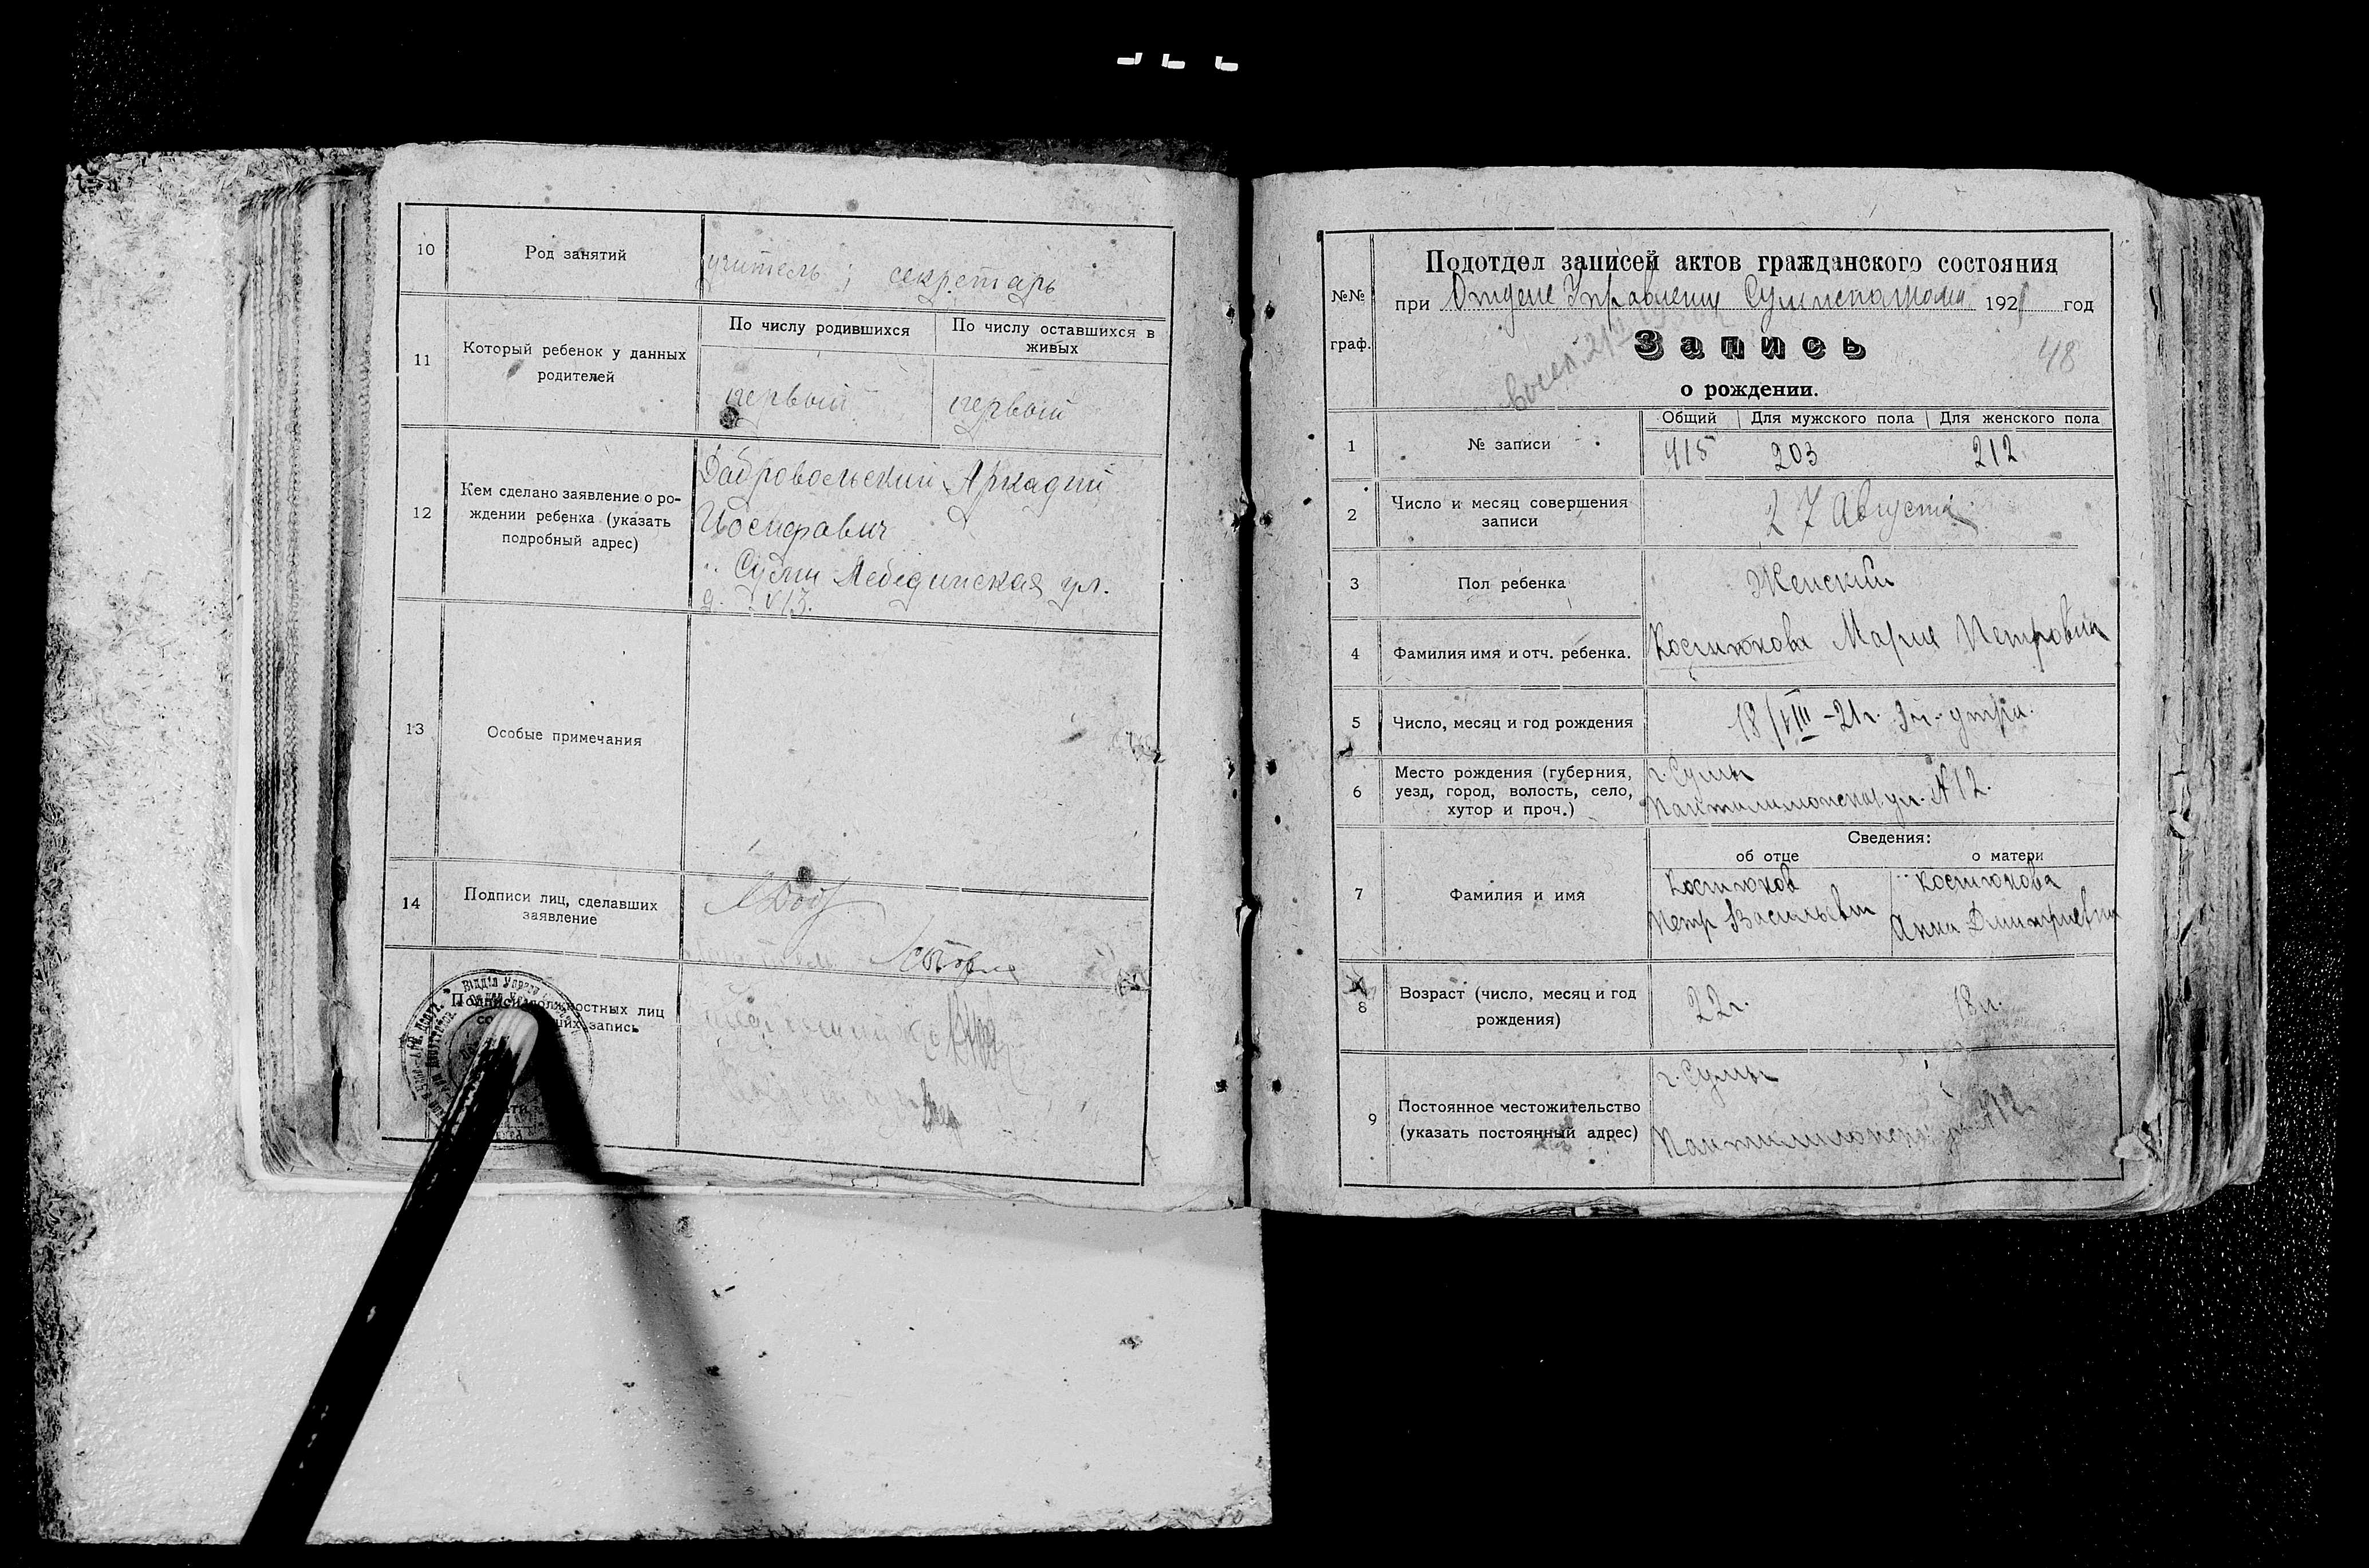 10
Род занятий
учитель ; секретарь
11
Который ребенок у данных
родителей
По числу родившихся
По числу оставшихся в
живых
первый
первый
12
Кем сделано заявление о ро-
ждении ребенка (указать
подробный адрес)
Добровольский Аркадий
Иосифович
Сумы Лебединская ул.
д. №13.
13
Особые примечания
14
Подписи лиц, сделавших
заявление
Подписи должностных лиц
запись
Відділ
№№
граф.
Подотдел записей актов гражданского состояния
при Отделе Управления 1921 год
Запись
48
о рождении.
1
№ записи
Общий
Для мужского пола
Для женского пола
415
203
212
2
Число и месяц совершения
записи
27 Августа
3
Пол ребенка
Женский
4
Фамилия имя и отч. ребенка.
Костюкова Мария Петровна
5
Число, месяц и год рождения
18/VIII-21г. утра.
6
Место рождения (губерния,
уезд, город, волость, село,
хутор и проч.)
г. Сумы
Пантилимонская ул. №12.
7
Фамилия и имя
Сведения:
об отце
о матери
Костюков
Петр Васильевич
Костюкова
Анна Дмитриевна
8
Возраст (число, месяц и год
рождения)
22г.
18л.
9
Постоянное местожительство
(указать постоянный адрес)
г. Сумы
№12.